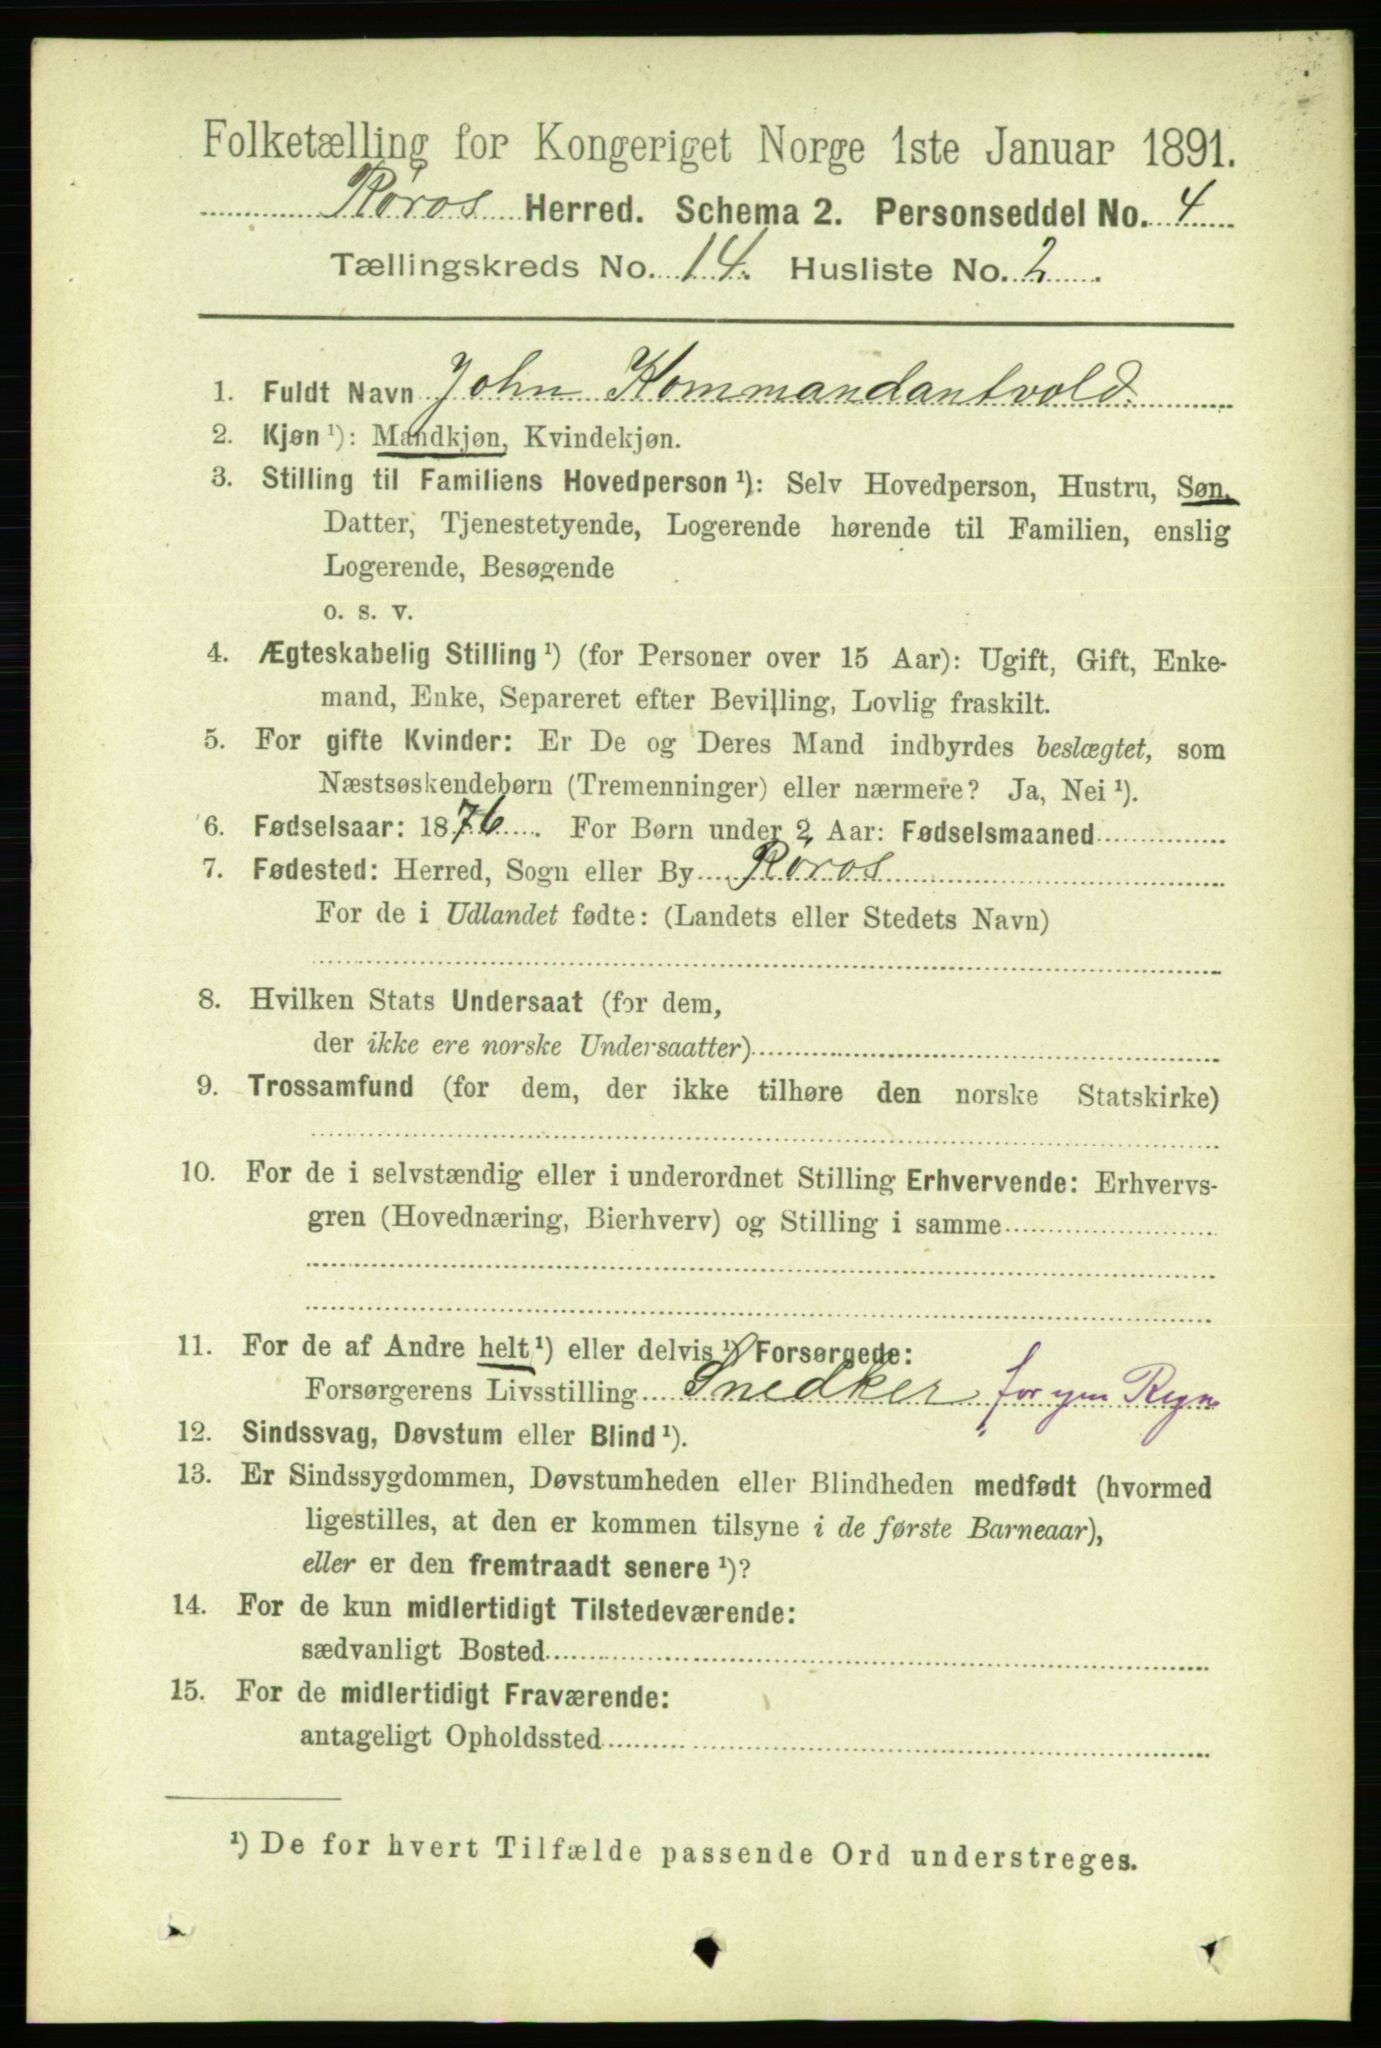 Folketælling for Kongeriget Norge 1ste Januar 1891.
Röros Herred. Schema 2. Personseddel No. 4
Tællingskreds No. 14. Husliste No. 2
1. Fuldt Navn John Kommandantvold.
2. Kjøn ¹): Mandkjøn, Kvindekjøn.
3. Stilling til Familiens Hovedperson ¹): Selv Hovedperson, Hustru, Søn,
Datter, Tjenestetyende, Logerende hørende til Familien, enslig
Logerende, Besøgende
o. s. v.
4. Ægteskabelig Stilling ¹) (for Personer over 15 Aar): Ugift, Gift, Enke-
mand, Enke, Separeret efter Bevilling, Lovlig fraskilt.
5. For gifte Kvinder: Er De og Deres Mand indbyrdes beslægtet, som
Næstsøskendebørn (Tremenninger) eller nærmere? Ja, Nei ¹).
6. Fødselsaar: 1876. For Børn under 2 Aar: Fødselsmaaned
7. Fødested: Herred, Sogn eller By Röros
For de i Udlandet fødte: (Landets eller Stedets Navn)
8. Hvilken Stats Undersaat (for dem,
der ikke ere norske Undersaatter)
9. Trossamfund (for dem, der ikke tilhøre den norske Statskirke)
10. For de i selvstændig eller i underordnet Stilling Erhvervende: Erhvervs-
gren (Hovednæring, Bierhverv) og Stilling i samme
11. For de af Andre helt ¹) eller delvis ¹) Forsørgede:
Forsørgerens Livsstilling Snedker for Regn
12. Sindssvag, Døvstum eller Blind ¹).
13. Er Sindssygdommen, Døvstumheden eller Blindheden medfødt (hvormed
ligestilles, at den er kommen tilsyne i de første Barneaar),
eller er den fremtraadt senere ¹)?
14. For de kun midlertidigt Tilstedeværende:
sædvanligt Bosted
15. For de midlertidigt Fraværende:
antageligt Opholdssted
¹) De for hvert Tilfælde passende Ord understreges.